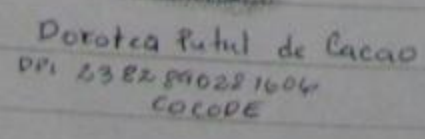 Dorotea Putul de Cacao
DPI 2382 89028 1604
COCODE